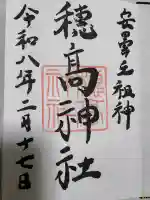 安曇之祖神
穂高神社
令和八年二月十七日